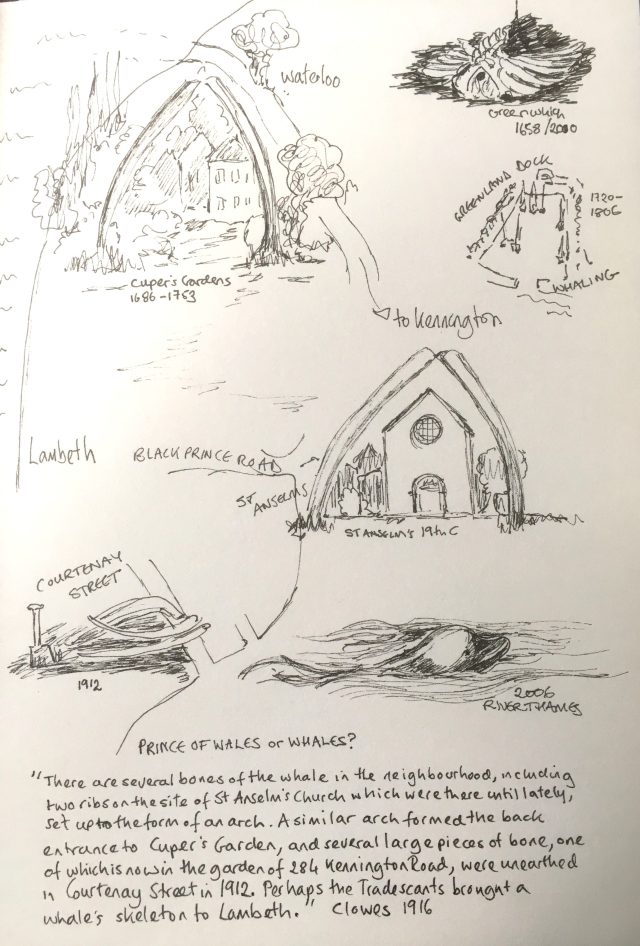 Waterloo
Greenwhich
1658/2000
GREENLAND DOCK
1720-
1806
WHALING
Cuper's Gardens
1686-1753
to Kennington
Lambeth
BLACK PRINCE ROAD
ST ANSELMS
ST ANSELM'S 19th C
COURTENAY
STREET
1912
2006
RIVER THAMES
PRINCE OF WALES or WHALES?
"There are several bones of the whale in the neighbourhood, including
two ribs on the site of St Anselm's Church which were there until lately,
set up to the form of an arch. A similar arch formed the back
entrance to Cuper's Garden, and several large pieces of bone, one
of which is now in the garden of 284 Kennington Road, were unearthed
in Courtenay Street in 1912. Perhaps the Tradescants brought a
whale's skeleton to Lambeth." Clowes 1916